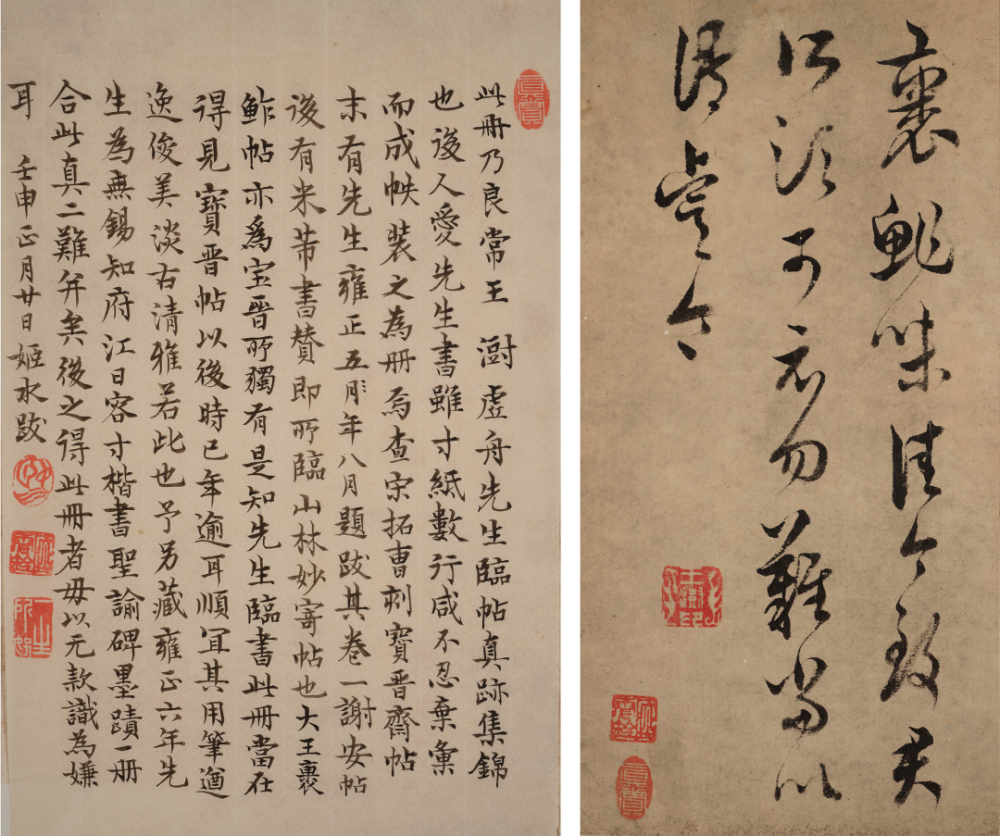 裹鮓味佳今致君
所須可示勿難當以
語虞令
真賞
真賞
此冊乃良常王 澍虛舟先生臨帖真跡集錦
也後人愛先生書雖寸紙數行咸不忍棄彙
而成帙裝之為冊焉查宋拓曹刻寶晉齋帖
末有先生雍正五年八月題跋其卷一謝安帖
後有米芾書贊即所臨山林妙寄帖也大王裹
鮓帖亦爲宝晉所獨有是知先生臨書此冊當在
得見寶晉帖以後時已年逾耳順宜其用筆遒
逸俊美淡古清雅若此也予另藏雍正六年先
生為無錫知府江日容寸楷書聖諭碑墨蹟一冊
合此真二難并矣後之得此冊者毋以无款識為嫌
耳 壬申正月廿日姬水跋